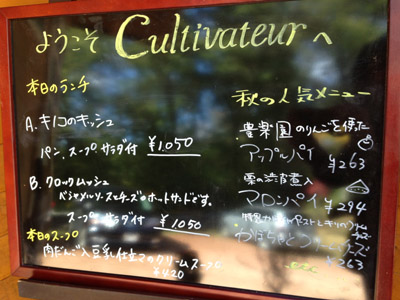 ようこそ Cultivateurへ
本日のランチ
A. キノコのキッシュ
パン、スープ、サラダ付 ¥1,050
B. クロックムッシュ
ベシャメルソースとチーズのホットサンドです。
スープ、サラダ付 ¥1050
本日のスープ
肉だんご入豆乳仕立てのクリームスープ
¥420
秋の人気メニュー
豊楽園のりんごを使った
アップルパイ
¥263
栗の渋皮煮入
マロンパイ
¥294
かぼちゃとクリームチーズ
¥263